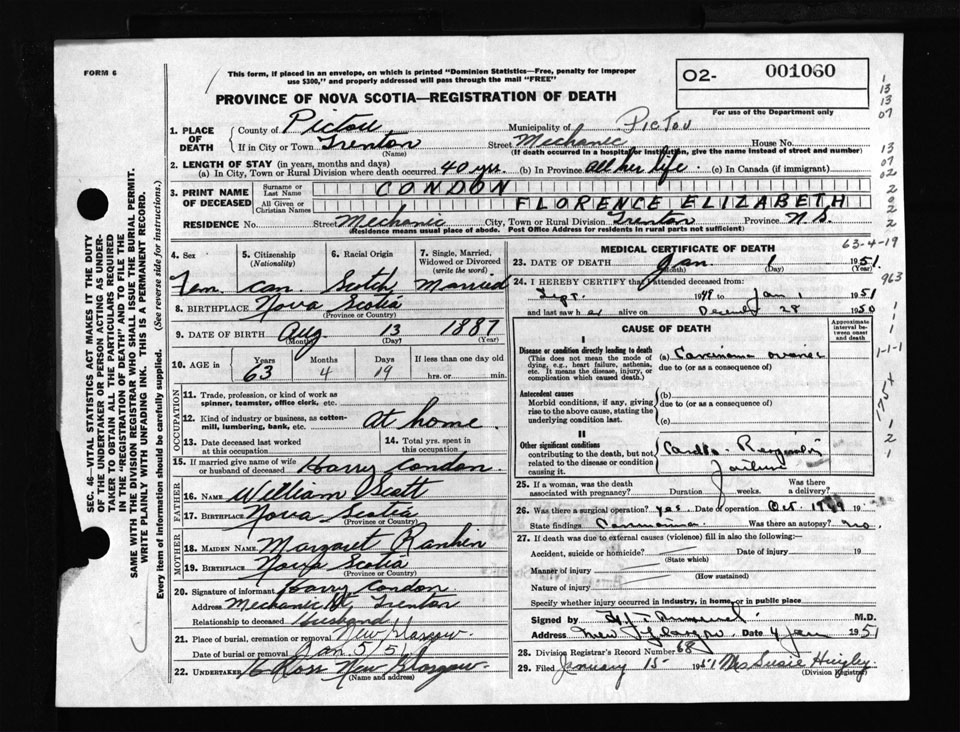 FORM 6
This form, if placed in an envelope, on which is printed "Dominion Statistics—Free, penalty for improper
use $300," and properly addressed will pass through the mail "FREE"
PROVINCE OF NOVA SCOTIA—REGISTRATION OF DEATH
O2- 001060
For use of the Department only
SEC. 46—VITAL STATISTICS ACT MAKES IT THE DUTY
OF THE UNDERTAKER OR PERSON ACTING AS UNDER-
TAKER TO OBTAIN ALL THE PARTICULARS REQUIRED
IN THE "REGISTRATION OF DEATH" AND TO FILE THE
SAME WITH THE DIVISION REGISTRAR WHO SHALL ISSUE THE BURIAL PERMIT.
WRITE PLAINLY WITH UNFADING INK. THIS IS A PERMANENT RECORD.
Every item of information should be carefully supplied. (See reverse side for instructions.)
1. PLACE OF DEATH
County of Pictou Municipality of Pictou
If in City or Town Trenton (Name) Street Mechanic House No.
(If death occurred in a hospital or institution, give the name instead of street and number)
2. LENGTH OF STAY (in years, months and days)
(a) In City, Town or Rural Division where death occurred 40 yrs. (b) In Province all her life (c) In Canada (if immigrant)
3. PRINT NAME OF DECEASED
Surname or Last Name CONDON
All Given or Christian Names FLORENCE ELIZABETH
RESIDENCE No. Street Mechanic City, Town or Rural Division Trenton Province N.S.
(Residence means usual place of abode. Post Office Address for residents in rural parts not sufficient)
4. Sex Fem.
5. Citizenship (Nationality) Can.
6. Racial Origin Scotch
7. Single, Married, Widowed or Divorced (write the word) Married
8. BIRTHPLACE Nova Scotia
(Province or Country)
9. DATE OF BIRTH Aug 13 1887
(Month) (Day) (Year)
10. AGE Years 63 Months 4 Days 19 If less than one day old
hrs. or min.
OCCUPATION
11. Trade, profession, or kind of work as
spinner, teamster, office clerk, etc.
12. Kind of industry or business, as cotton-
mill, lumbering, bank, etc. At home
13. Date deceased last worked
at this occupation
14. Total yrs. spent in
this occupation
15. If married give name of wife
or husband of deceased Harry Condon
FATHER
16. Name William Scott
17. Birthplace Nova Scotia
(Province or Country)
MOTHER
18. MAIDEN NAME Margaret Rankin
19. BIRTHPLACE Nova Scotia
(Province or Country)
20. Signature of informant Harry Condon
Address Mechanic St. Trenton
Relationship to deceased Husband
21. Place of burial, cremation or removal New Glasgow
Date of burial or removal Jan 5/51
22. UNDERTAKER Ross New Glasgow
(Name and address)
MEDICAL CERTIFICATE OF DEATH
63-4-19
23. DATE OF DEATH Jan. 1 1951
(Month) (Day) (Year)
24. I HEREBY CERTIFY that I attended deceased from:
Sept. 1949 to Jan 1 1951
and last saw her alive on December 28 1950
CAUSE OF DEATH
Approximate
interval be-
tween onset
and death
I
Disease or condition directly leading to death
(This does not mean the mode of
dying, e.g., heart failure, asthenia,
etc. It means the disease, injury, or
complication which caused death.)
(a) Carcinoma
due to (or as a consequence of)
Antecedent causes
Morbid conditions, if any, giving
rise to the above cause, stating the
underlying condition last.
(b)
due to (or as a consequence of)
(c)
II
Other significant conditions
contributing to the death, but not
related to the disease or condition
causing it.
Cardio- Respiratory
Failure
25. If a woman, was the death
associated with pregnancy? Duration weeks. Was there
a delivery?
26. Was there a surgical operation? yes. Date of operation Oct. 1949 19
State findings Carcinoma. Was there an autopsy? no.
27. If death was due to external causes (violence) fill in also the following:
Accident, suicide or homicide? Date of injury 19
(State which)
Manner of injury
(How sustained)
Nature of injury
Specify whether injury occurred in industry, in home, or in public place
Signed by M.D.
Address New Glasgow Date 4 Jan 1951
28. Division Registrar's Record Number 68
29. Filed January 15 1951 Mrs Susie
(Division Registrar)
1
13
13
07
13
07
02
2
9
2
2
963
1
1
1-1-1
1
2
1